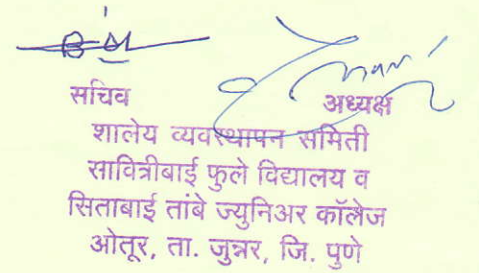 सचिव अध्यक्ष
शालेय व्यवस्थापन समिती
सावित्रीबाई फुले विद्यालय व
सिताबाई तांबे ज्युनिअर कॉलेज
ओतूर, ता. जुन्नर, जि. पुणे